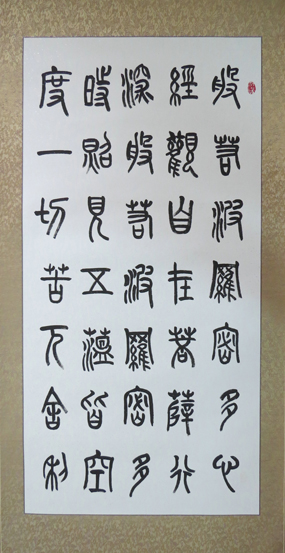 般若波羅密多心
經觀自在菩薩行
深般若波羅密多
時照見五蘊皆空
度一切苦厄舍利